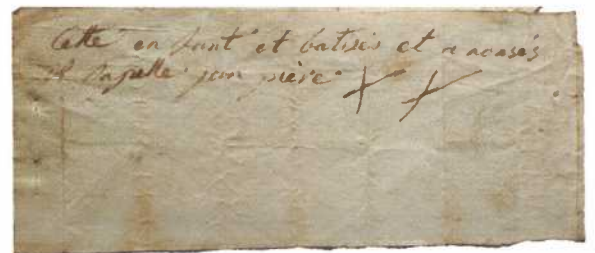 Cette en fant et batisés et anonsés
il sapelle jan pière